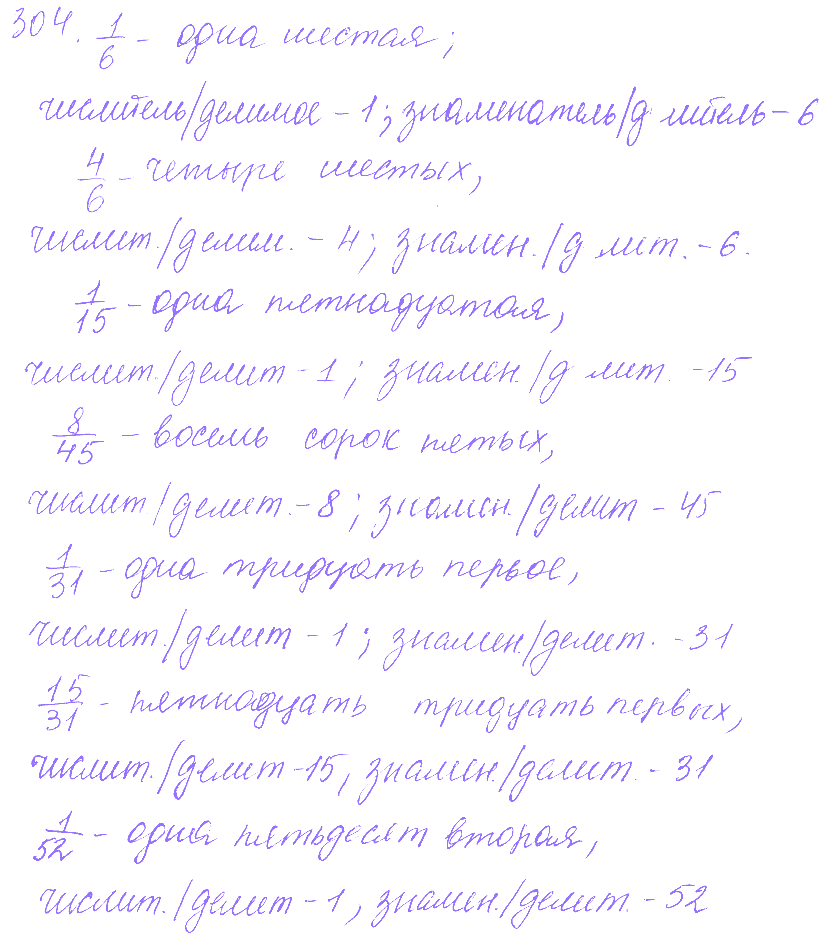 304. 1/6 - одна шестая;
числитель/делимое - 1; знаменатель/д литель - 6
4/6 - четыре шестых,
числит./делим. - 4; знамен./д лит. - 6.
1/15 - одна пятнадцатая,
числит./делит - 1; знамен./д лит. - 15
8/45 - восемь сорок пятых,
числит/делит. - 8; знамен./делит - 45
1/31 - одна тридцать первое,
числит./делит - 1; знамен./делит. - 31
15/31 - пятнадцать тридцать первых,
числит./делит - 15, знамен./делит. - 31
1/52 - одна пятьдесят вторая,
числит./делит - 1, знамен./делит. - 52